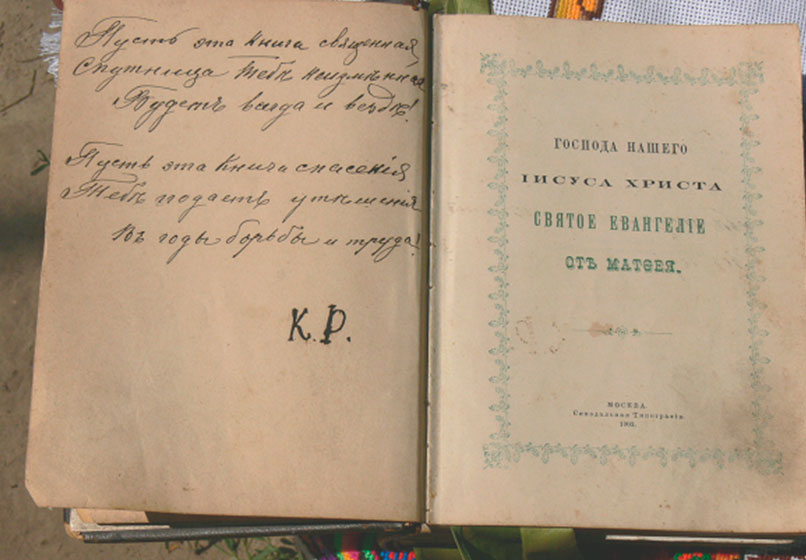 Пусть эта книга священная,
Спутница Тебѣ неизмѣнная
Будетъ всегда и вездѣ!
Пусть эта Книга спасенія
Тебѣ подастъ утѣшенія
Въ годы борьбы и труда!
К.Р.
ГОСПОДА НАШЕГО
ІИСУСА ХРИСТА
СВЯТОЕ ЕВАНГЕЛІЕ
ОТЪ МАТѲЕЯ.
МОСКВА.
Синодальная Типографія.